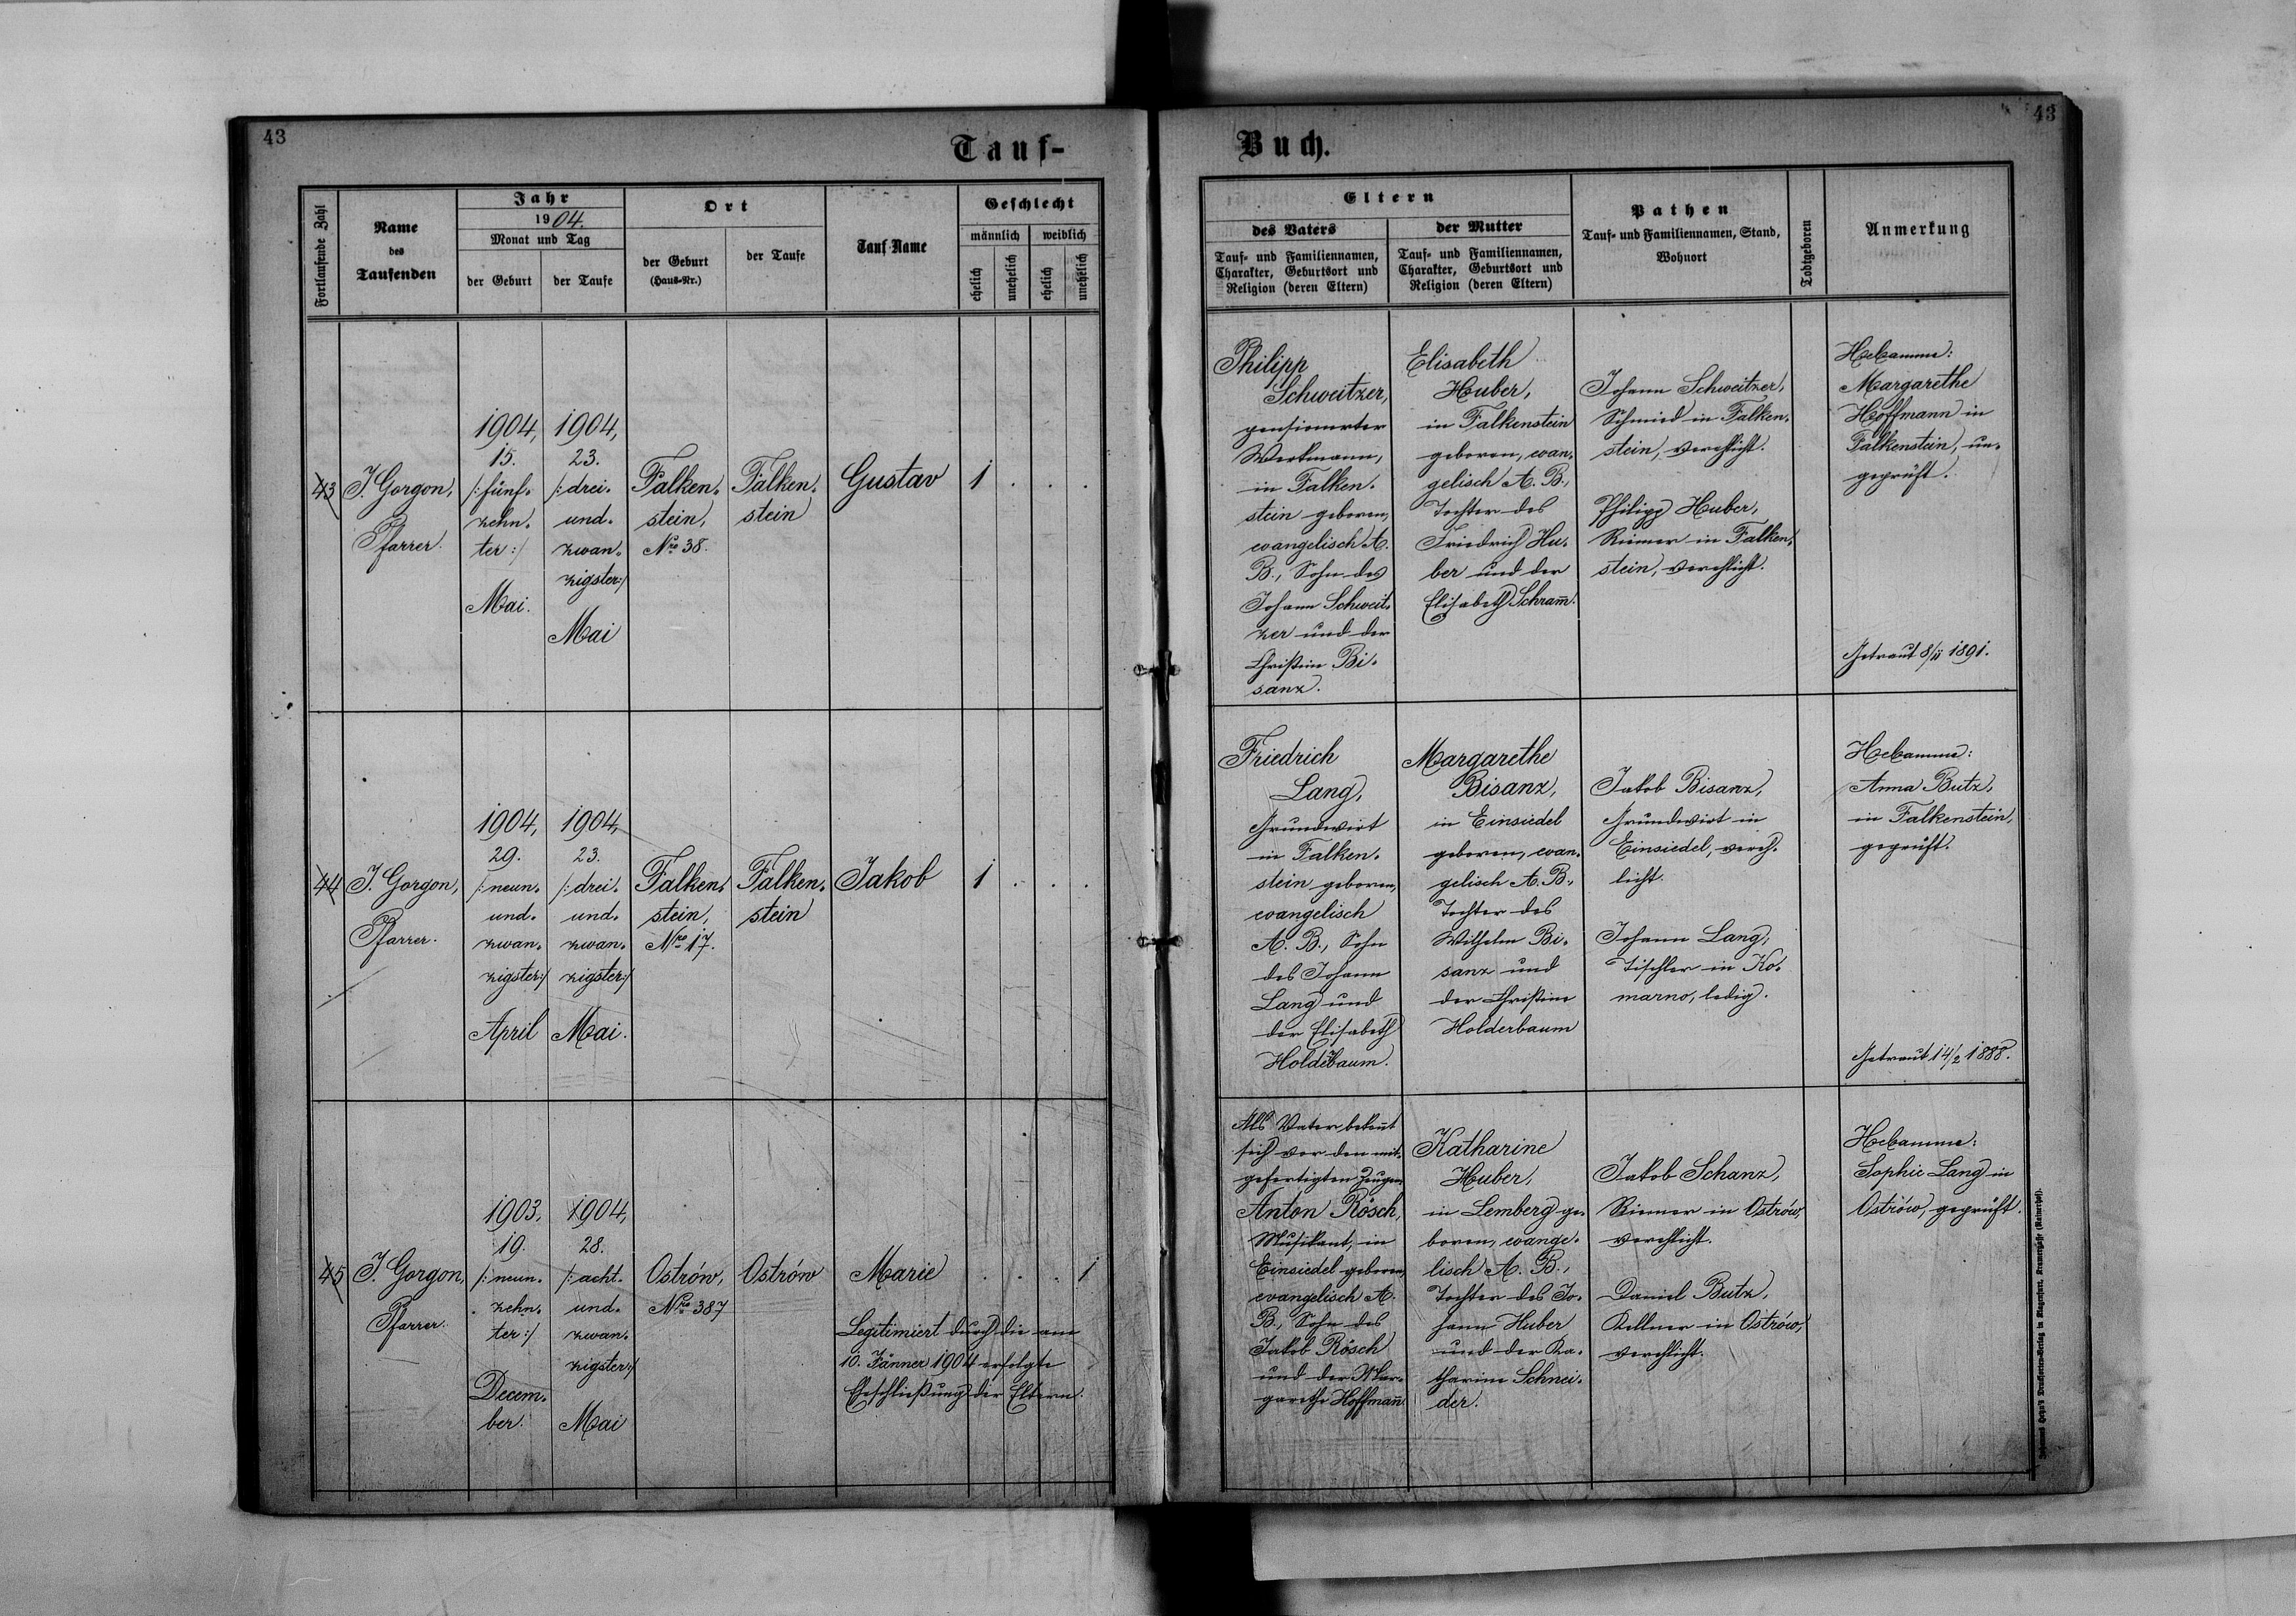 43
Tauf-
Fortlaufende Zahl
Name
des
Taufenden
Jahr
1904.
Monat und Tag
der Geburt
der Taufe
Ort
der Geburt
(Haus-Nr.)
der Taufe
Tauf-Name
Geschlecht
männlich
weiblich
ehelich
unehelich
ehelich
unehelich
43
J. Gorgon,
Pfarrer.
1904,
15.
/:fünf-
zehn-
ter:/
Mai.
1904,
23.
/:drei-
und-
zwan-
zigster:/
Mai
Falken-
stein,
Nro 38.
Falken-
stein
Gustav
1 . . .
44
J. Gorgon,
Pfarrer.
1904,
29.
/:neun-
und-
zwan-
zigster:/
April
1904,
23.
/:drei-
und-
zwan-
zigster:/
Mai.
Falken-
stein,
Nro 17.
Falken-
stein
Jakob
1 . . .
45
J. Gorgon,
Pfarrer.
1903,
19.
/:neun-
zehn-
ter:/
Decem-
ber.
1904,
28.
/:acht-
und-
zwan-
zigster:/
Mai
Ostrów,
Nro 387
Ostrów
Marie
. . . 1
Legitimiert durch die am
10. Jänner 1904 erfolgte
Eheschließung der Eltern.
43
Buch.
Eltern
des Vaters
Tauf- und Familiennamen,
Charakter, Geburtsort und
Religion (deren Eltern)
der Mutter
Tauf- und Familiennamen,
Charakter, Geburtsort und
Religion (deren Eltern)
Pathen
Tauf- und Familiennamen, Stand,
Wohnort
Todtgeboren
Anmerkung
Philipp
Schweitzer,
pensionierter
Werkmann,
in Falken-
stein geboren,
evangelisch A.
B., Sohn des
Johann Schweit-
zer und der
Christine Bi-
sanz.
Elisabeth
Huber,
in Falkenstein
geboren, evan-
gelisch A. B.,
Tochter des
Friedrich Hu-
ber und der
Elisabeth Schram̅.
Johann Schweitzer,
Schmied in Falken-
stein, verehlicht.
Philipp Huber,
Riemer in Falken-
stein, verehlicht.
Hebamme:
Margarethe
Hoffmann in
Falkenstein, un-
geprüft.
Getraut 8/11 1891.
Friedrich
Lang,
Grundwirt
in Falken-
stein geboren,
evangelisch
A. B., Sohn
des Johann
Lang und
der Elisabeth
Holderbaum.
Margarethe
Bisanz,
in Einsiedel
geboren, evan-
gelisch A. B.,
Tochter des
Wilhelm Bi-
sanz und
der Christine
Holderbaum
Jakob Bisanz,
Grundwirt in
Einsiedel, vereh-
licht.
Johann Lang,
Tischler in Ko-
marno, ledig.
Hebamme:
Anna Butz,
in Falkenstein,
geprüft.
Getraut 14/2 1888.
Als Vater beken̅t
sich vor den mit-
gefertigten Zeugen
Anton Rösch,
Musikant, in
Einsiedel geboren,
evangelisch A.
B., Sohn des
Jakob Rösch
und der Mar-
garethe Hoffman̅.
Katharine
Huber,
in Lemberg ge-
boren, evange-
lisch A. B.,
Tochter des Jo-
hann Huber
und der Ka-
tharine Schnei-
der.
Jakob Schanz,
Riemer in Ostrów,
verehlicht.
Daniel Butz,
Kellner in Ostrów,
verehlicht.
Hebamme:
Sophie Lang in
Ostrów, geprüft.